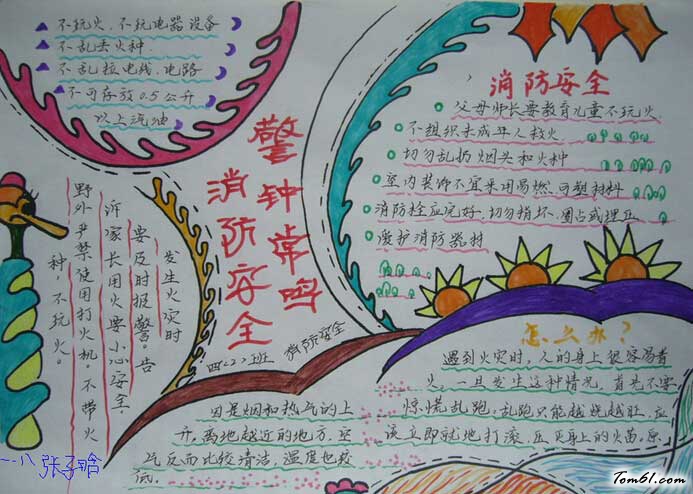 不玩火、不玩电器设备
不乱丢火种
不乱拉电线、电路
不可存放0.5公升
以上汽油
警钟常鸣
消防安全
消防安全
父母师长要教育儿童不玩火
不组织未成年人救火
切勿乱扔烟头和火种
室内装饰不宜采用易燃、可塑材料
消防栓应完好、切勿损坏、圈占或埋压
爱护消防器材
发生火灾时
要及时报警。告
诉家长用火要小心安全.
野外严禁使用打火机。不带火
种,不玩火。
四〈二〉班
消防安全
怎么办?
遇到火灾时,人的身上很容易着
火,一旦发生这种情况,首先不要
惊慌乱跑,乱跑只能越烧越旺,应
该立即就地打滚,压灭身上的火苗。原
因是烟和热气的上
升,离地越近的地方,空
气反而比较清洁,温度也较
低。
一.八 张子晗
Tom61.com